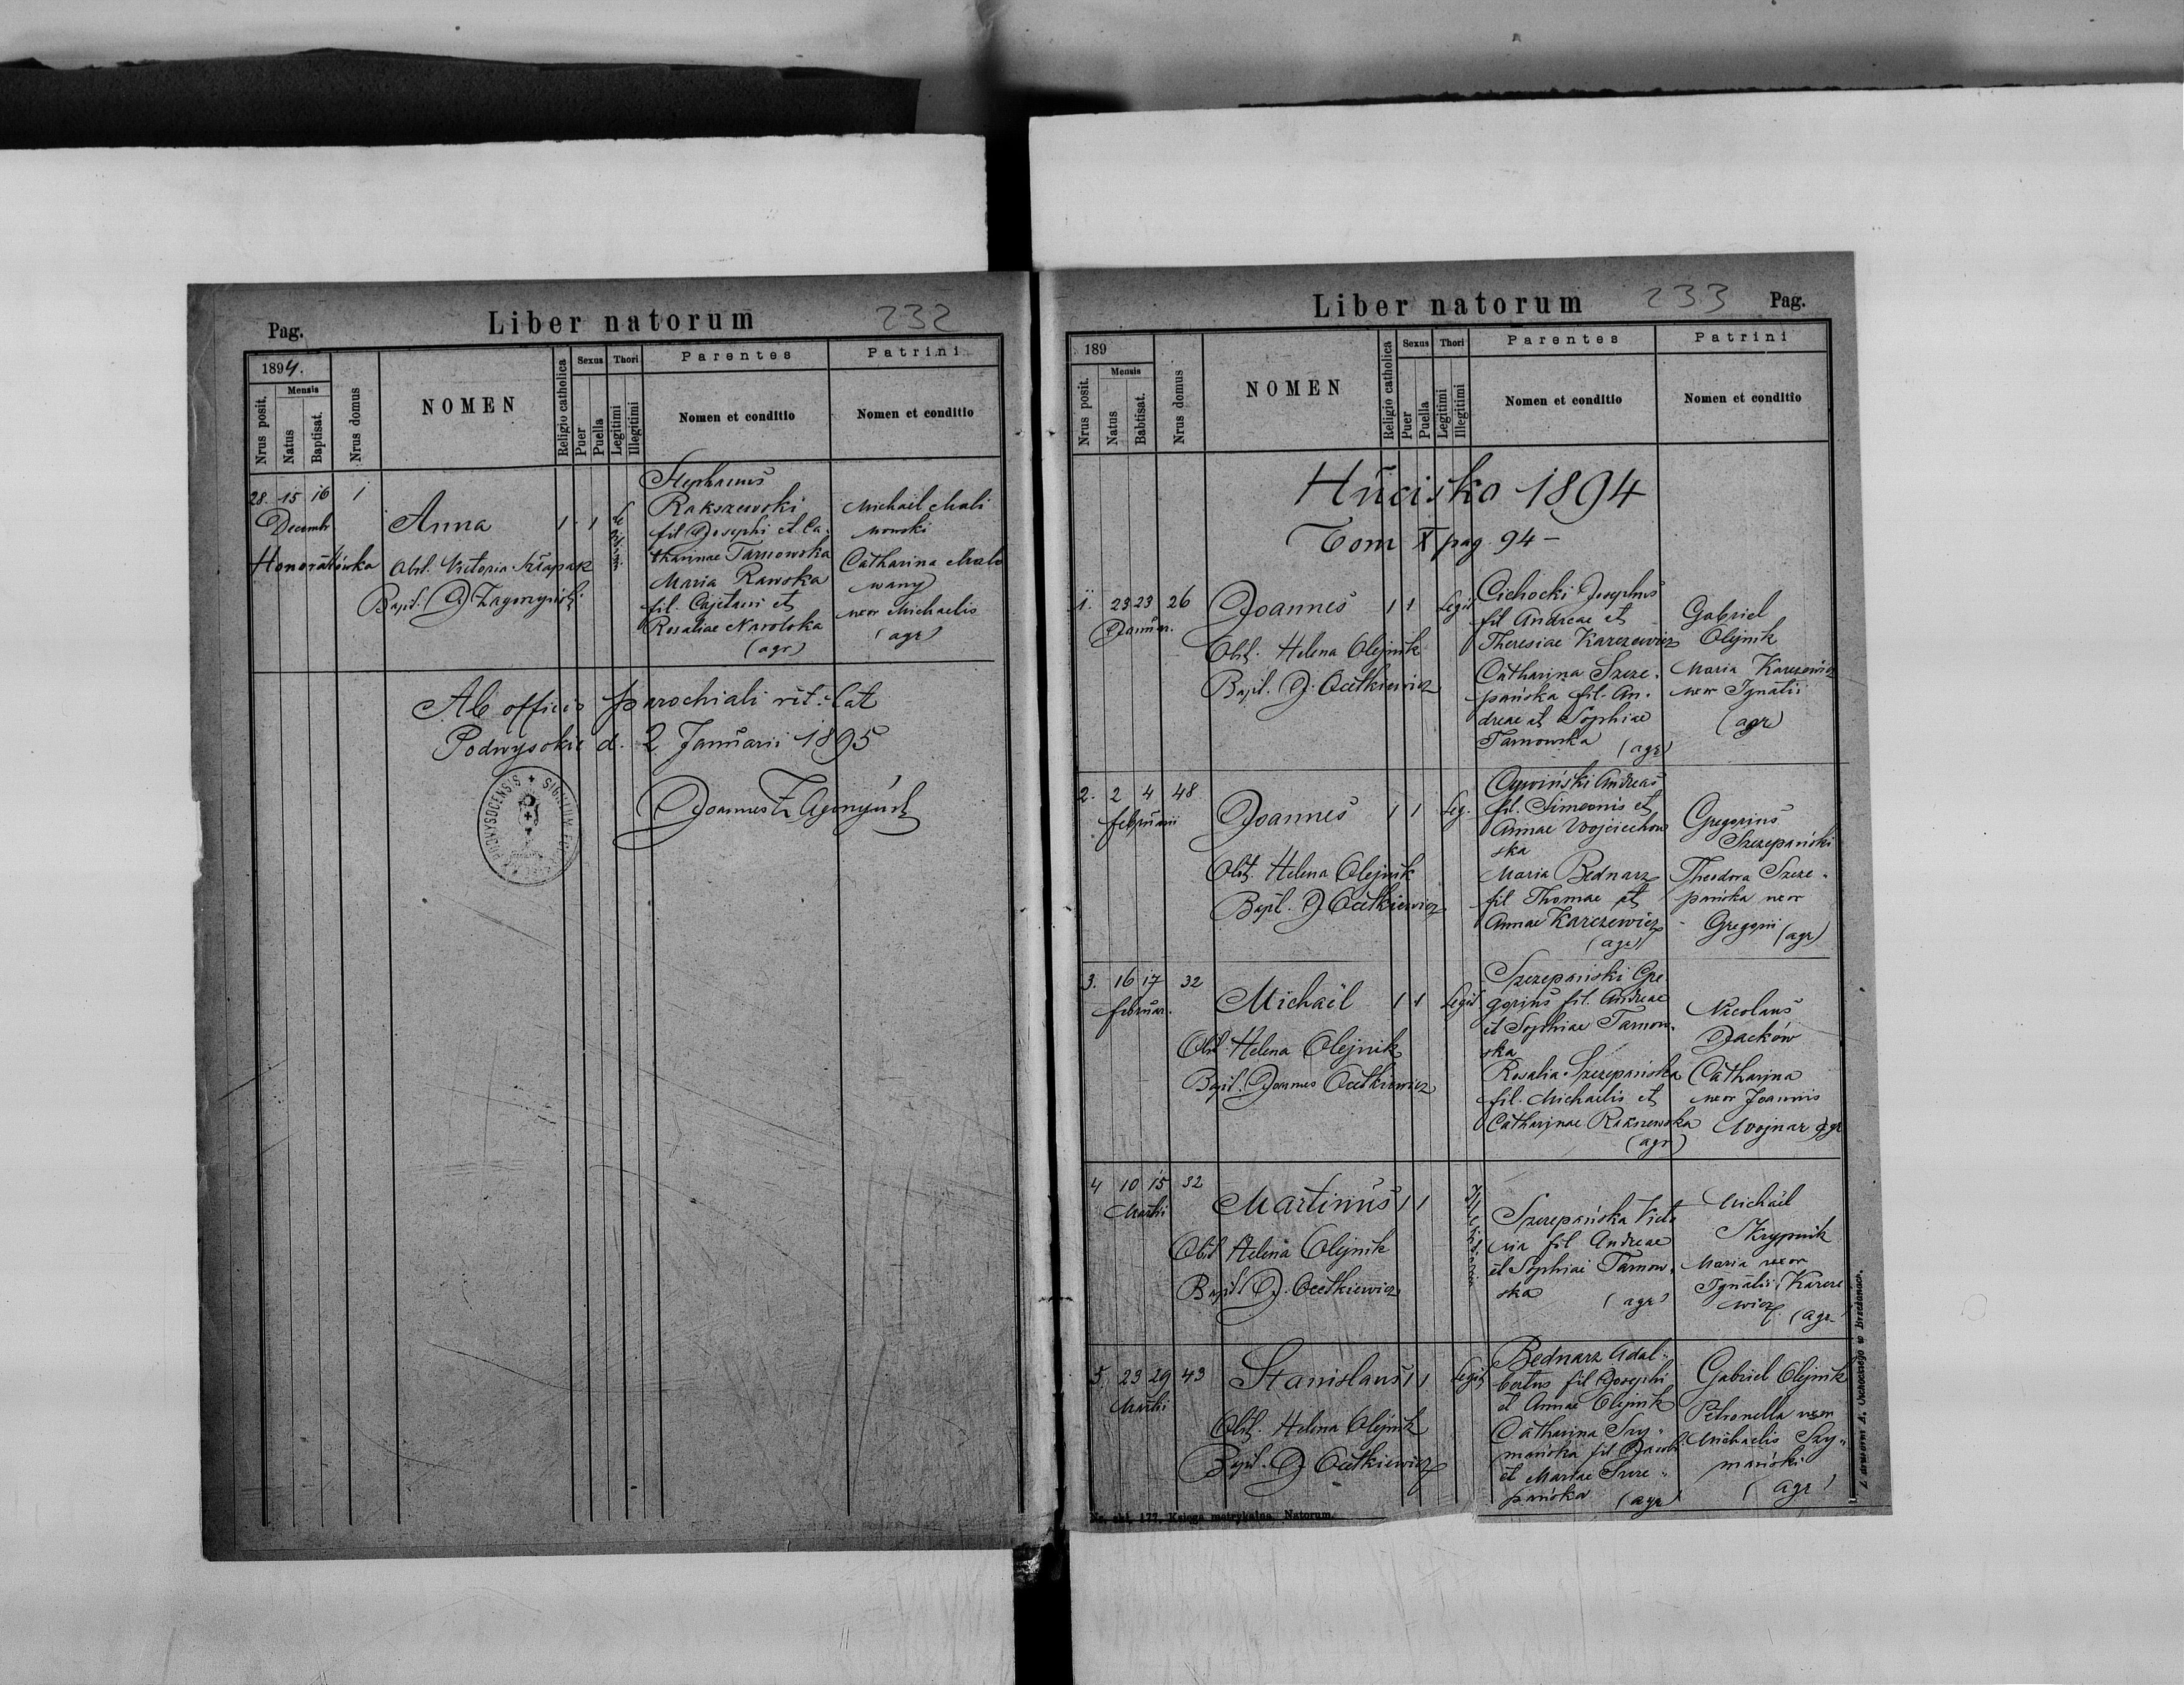 Pag. Liber natorum 232
1894.
Mensis
Nrus posit. Natus Baptisat. Nrus domus
NOMEN
Religio catholica
Sexus Thori
Puer Puella Legitimi Illegitimi
Parentes
Nomen et conditio
Patrini
Nomen et conditio
28. 15 16 1
Decembr
Honoratówka
Anna 1 1
Obst. Victoria
Bapt. J Zagonyński
Stephanus
Rakszewski
fil Josephi et Ca-
tharinae Tarnowska
Maria Rawska
fil. Cajetani et
Rosaliae Nawolska
(agr)
Michael Mali
nowski
Catharina Malo
wany
uxor Michaelis
(agr)
Ab officio parochiali rit. lat
Podwysokie d. 2 Januarii 1895
Joannes
Liber natorum 233 Pag.
189
Nrus posit.
Mensis
Natus Babtisat. Nrus domus
NOMEN
Religio catholica
Sexus Thori
Puer Puella Legitimi Illegitimi
Parentes
Nomen et conditio
Patrini
Nomen et conditio
Hucisko 1894
Tom X pag. 94 -
1. 23 23 26
Januar.
Joannes 1 1 Legit
Obst. Helena Olejnik
Bapt. J. Ocetkiewicz
Cichocki Josephus
fil Andreae et
Theresiae Karczewicz
Catharina Szcze-
pańska fil. An-
dreae et Sophiae
Tarnowska (agr)
Gabriel
Olejnik
Maria Karczewicz
uxor Ignatii
(agr)
2. 2 4 48
februarii
Joannes 1 1 Leg.
Obst. Helena Olejnik
Bapt. J Ocetkiewicz
Cywiński Andreas
fil. Simeonis et
Annae Wojciechow
ska
Maria Bednarz
fil Thomae et
Annae Karczewicz
(agr)
Gregorius
Szczepański
Theodora Szcze-
pańska uxor
Gregorii (agr)
3. 16 17 32
februar.
Michaël 1 1 Legit
Obst Helena Olejnik
Bapt. Joannes Ocetkiewicz
Szczepański Gre
gorius fil. Andreae
et Sophiae Tarnow-
ska
Rosalia Szczepańska
fil. Michaelis et
Catharinae Rakszewska
(agr)
Nicolaus
Jacków
Catharina
uxor Joannis
Wojnar agr
4 10 15 32
Martii
Martinus 1 1
Obst Helena Olejnik
Bapt J. Ocetkiewicz
Szczepańska Victo
ria fil Andreae
et Sophiae Tarnow-
ska (agr)
Michaël
Skrypnik
Maria uxor
Ignatii Karcze
wicz (agr
5. 23 29 43
Martii
Stanislaus 1 1 Legit
Obst. Helena Olejnik
Bapt. J Ocetkiewicz
Bednarz Adal-
bertus fil Josephi
et Annae Olejnik
Catharina Szy-
mańska fil Jacobi
et Mariae Szcze-
pańska (agr)
Gabriel Olejnik
Petronella uxor
Michaelis Szy-
mański
(agr)
Księga metrykalna. Natorum.